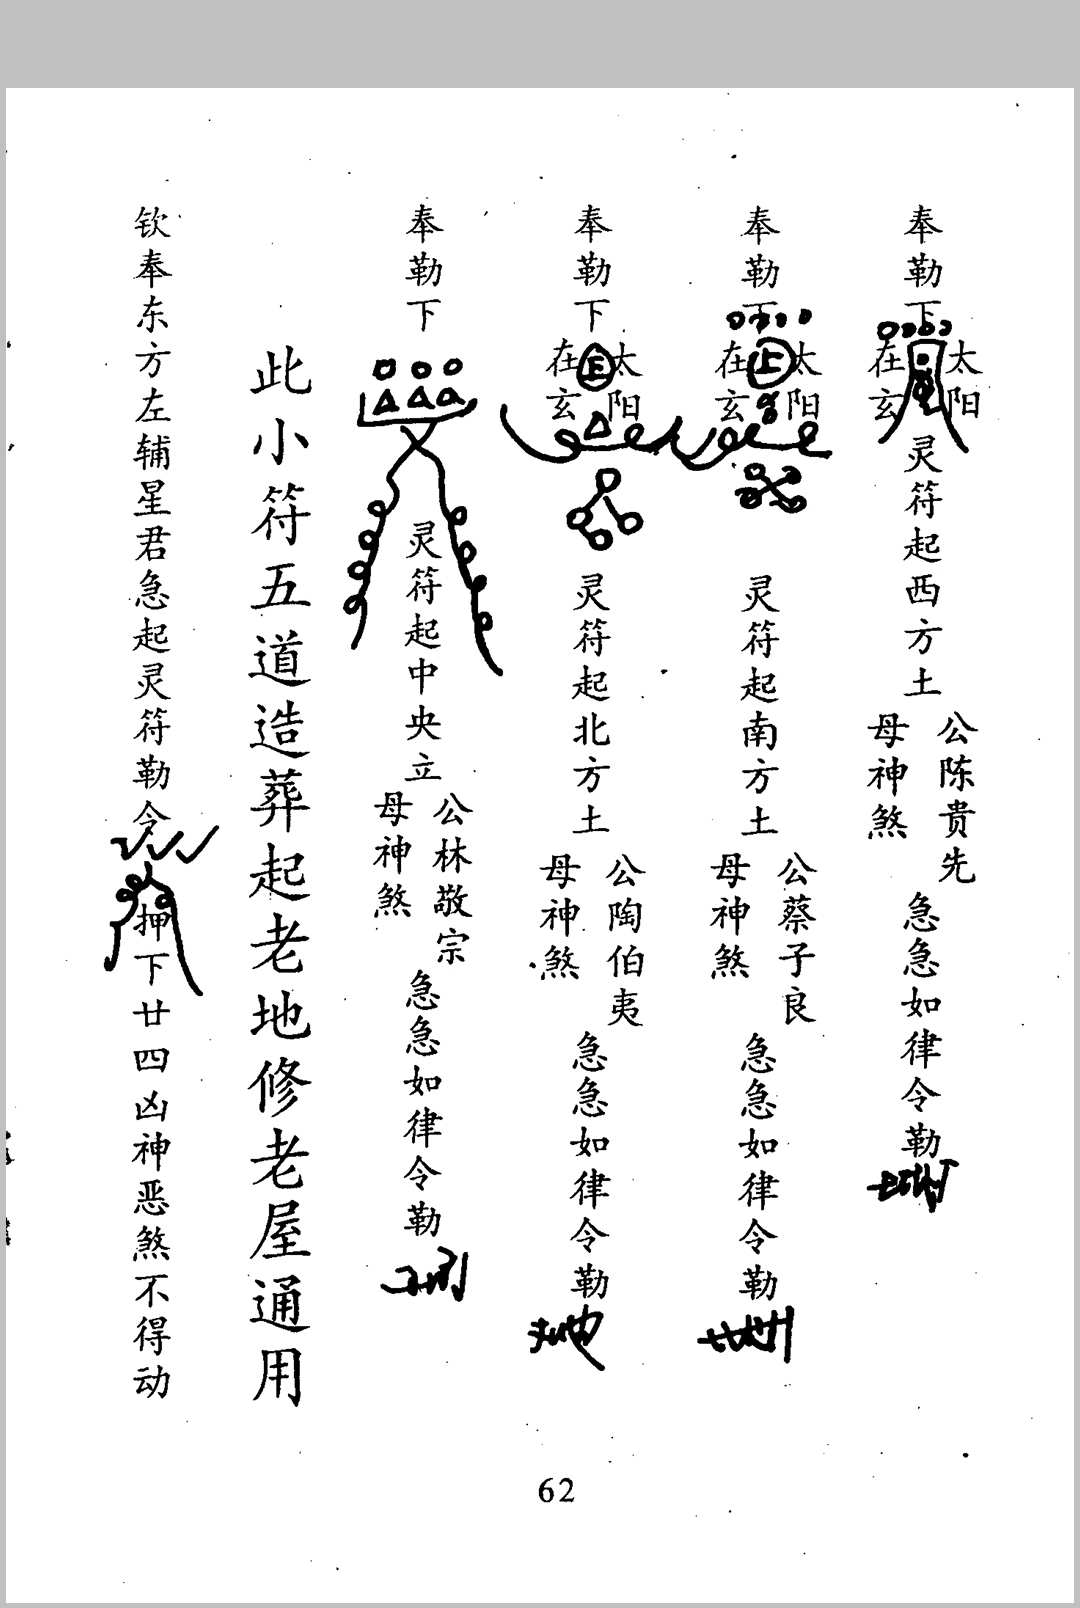 奉勒下
太阳
在玄
灵符起西方土
公陈贵先
母神煞
急急如律令勒
奉勒下
太阳
在玄
灵符起南方土
公蔡子良
母神煞
急急如律令勒
奉勒下
太阳
在玄
灵符起北方土
公陶伯夷
母神煞
急急如律令勒
奉勒下
灵符起中央立
公林敬宗
母神煞
急急如律令勒
此小符五道造葬起老地修老屋通用
钦奉东方左辅星君急起灵符勒令
押下廿四凶神恶煞不得动
62